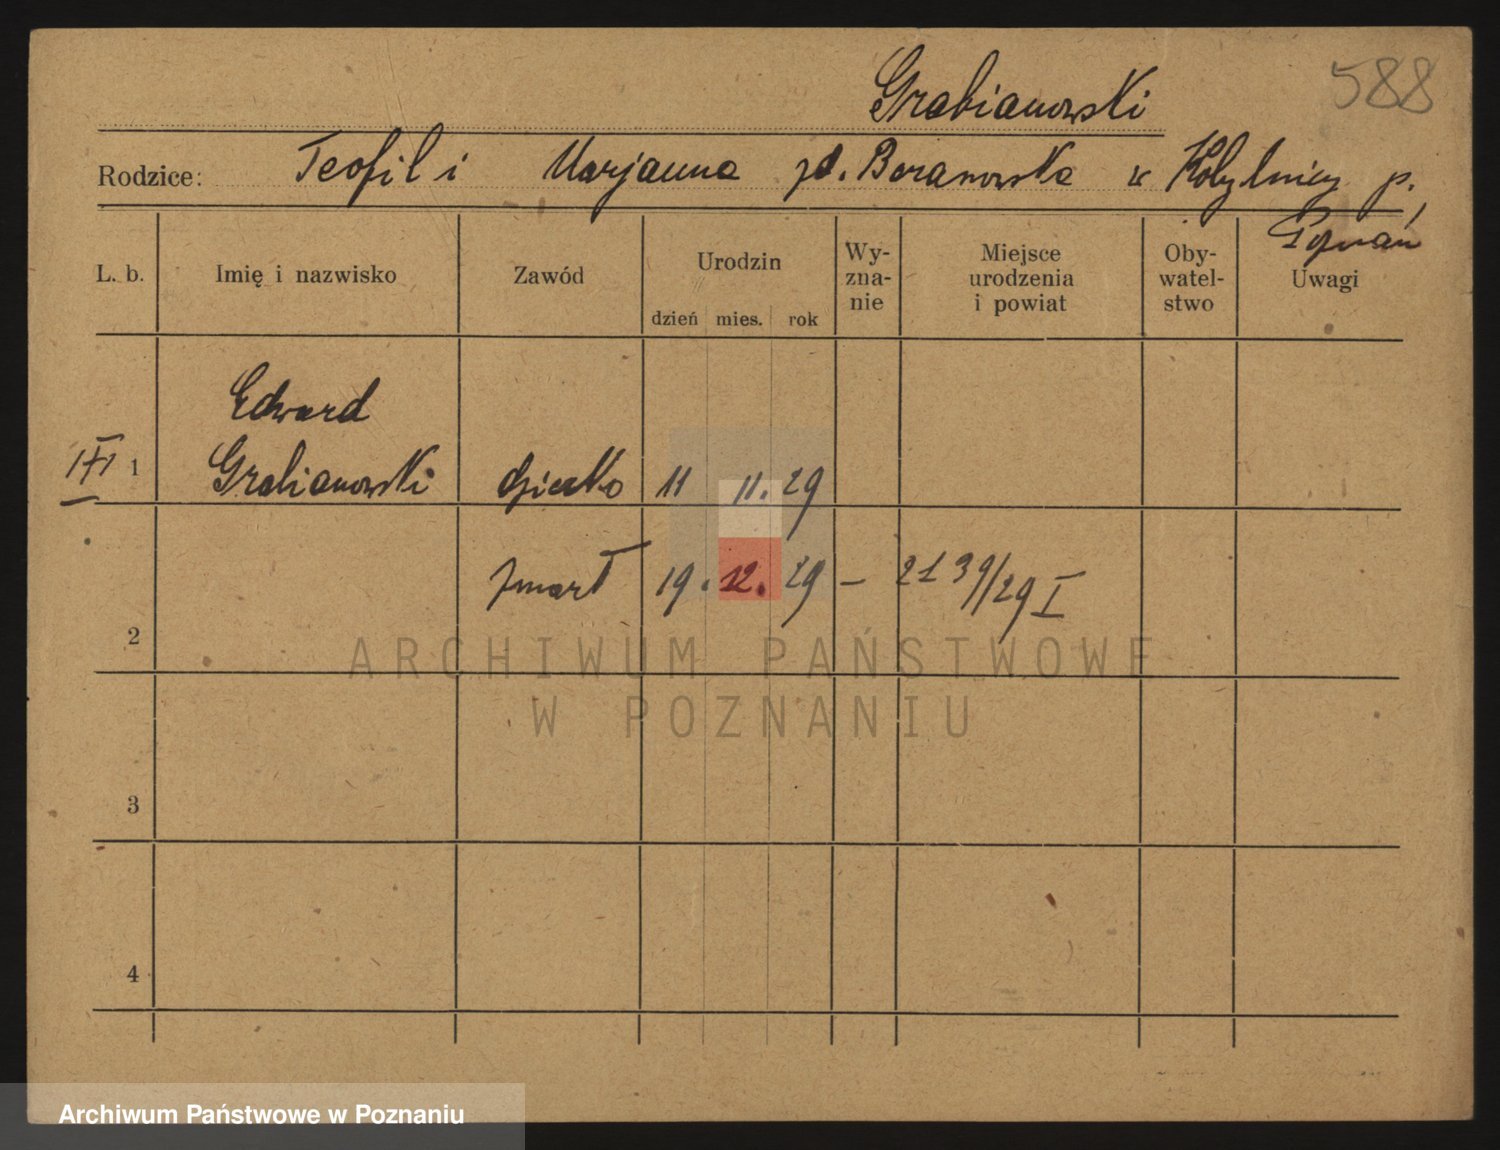 588
Grabianowski
Rodzice: Teofil i Marjanna zd. Baranowska w Kobylnicy p.
Poznań
L. b. Imię i nazwisko Zawód Urodzin Wy- Miejsce Oby- Uwagi
zna- urodzenia watel-
nie i powiat stwo
dzień mies. rok
Edward
1 Grabianowski dziecko 11 11. 29
zmarł 19. 12. 29 – 2139/29 I
2
3
4
ARCHIWUM PAŃSTWOWE
W POZNANIU
Archiwum Państwowe w Poznaniu